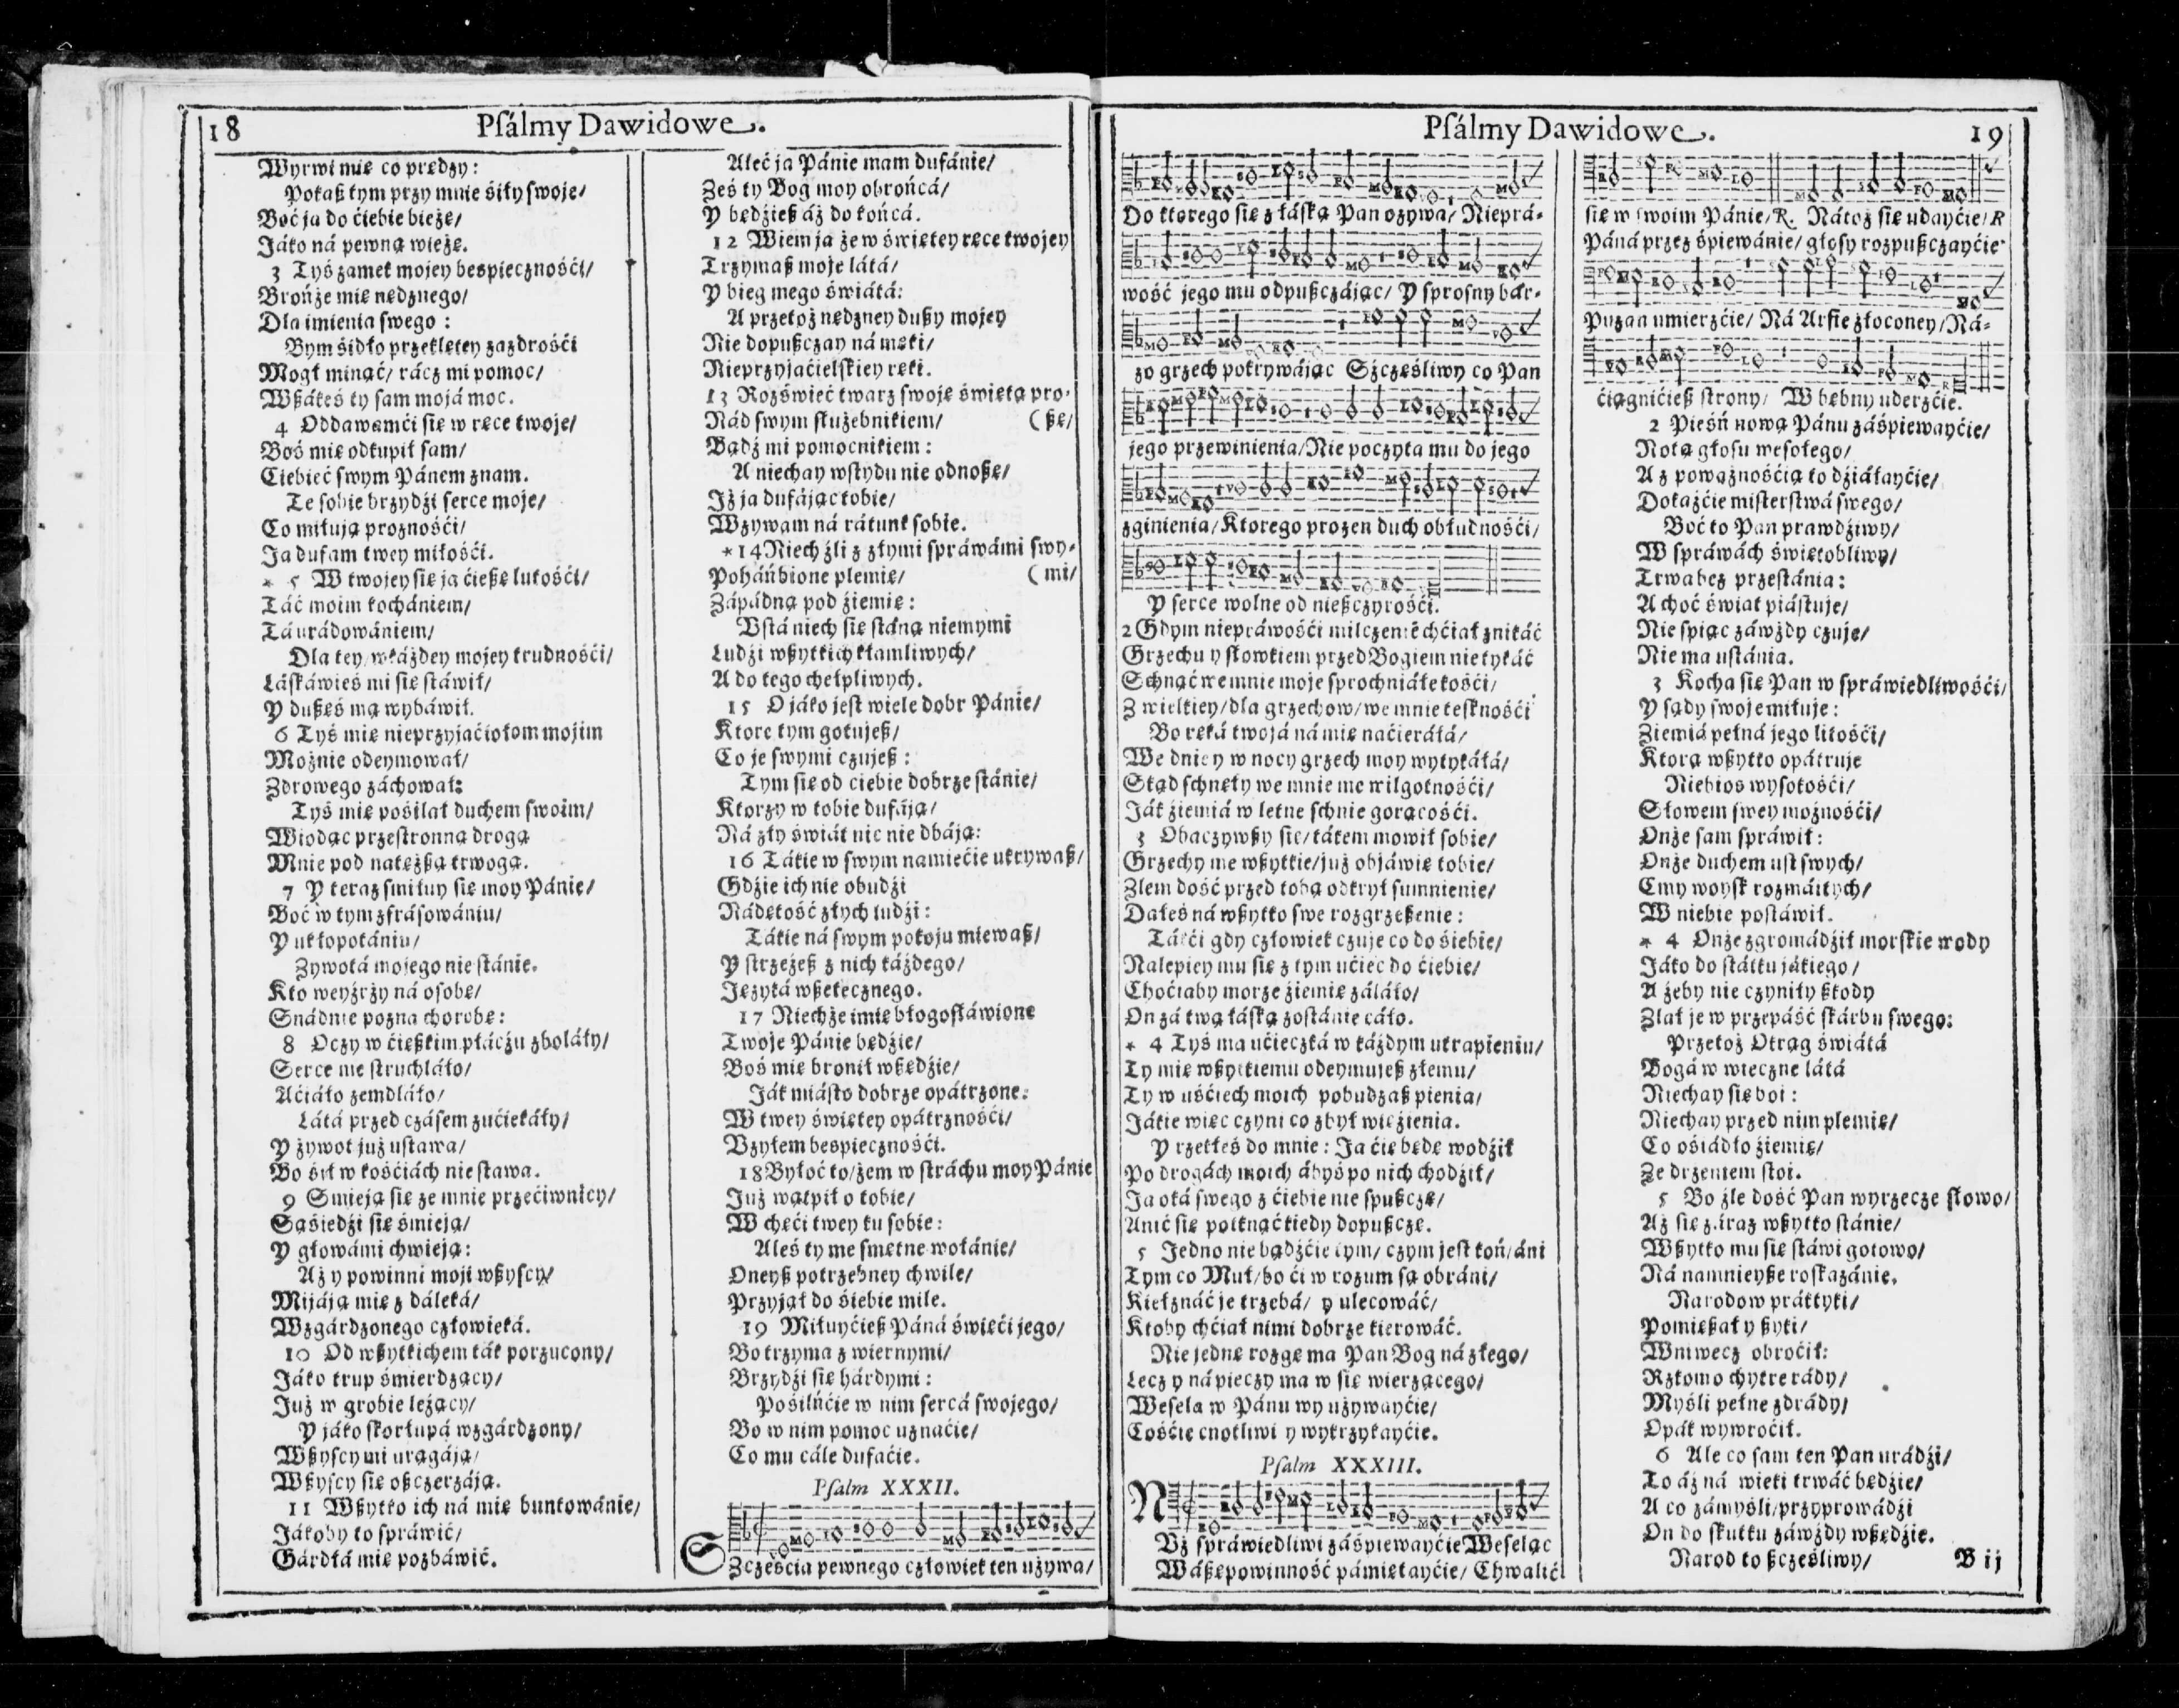 18
Psálmy Dawidowe.
Wyrwi mię co prędzy:
Pokaß tym przy mnie śiły swoje/
Boć ja do ćiebie bieżę/
Jáko ná pewną wieżę.
3 Tyś zamek mojey bespiecznośći/
Brońże mię nędznego/
Dla imienia swego :
Bym śidło przeklętey zazdrośći
Mogł minąć/ rácz mi pomoc/
Wßákeś ty sam mojá moc.
4 Oddawamći się w ręce twoje/
Boś mię odkupił sam/
Ciebieć swym Pánem znam.
Te sobie brzydźi serce moje/
Co miłują proznośći/
Ja dufam twey miłośći.
* 5 W twojey się ja ćießę lutośći/
Táć moim kochániem/
Tá urádowániem/
Dla tey/ w káżdey mojey trudnośći/
Láskáwieś mi się stáwił/
Y dußęś mą wybáwił.
6 Tyś mię nieprzyjaćiołom mojim
Możnie odeymował/
Zdrowego záchował:
Tyś mię pośilał duchem swoim/
Wiodąc przestronną drogą
Mnie pod natężßą trwogą.
7 Y teraz smiłuy się moy Pánie/
Boć w tym zfrásowániu/
Y ukłopotániu/
Zywotá mojego nie stánie.
Kto weyźrzy ná osobę/
Snádnie pozna chorobę:
8 Oczy w ćięßkim płáczu zboláły/
Serce me struchláło/
Aćiáło zemdláło/
Látá przed czásem zućiekáły/
Y żywot już ustawa/
Bo śił w kośćiách nie stawa.
9 Smieją się ze mnie przećiwnicy/
Sąśiedźi się śmieją/
Y głowámi chwieją:
Aż y powinni moji wßyscy/
Mijáją mię z dáleká/
Wzgárdzonego człowieká.
10 Od wßytkich em ták porzucony/
Jáko trup śmierdzący/
Już w grobie leżący/
Y jáko skorłupá wzgárdzony/
Wßyscy mi urągáją/
Wßyscy się oßczerzáją.
11 Wßytko ich ná mię buntowánie/
Jákoby to spráwić/
Gárdłá mię pozbáwić.
Aleć ja Pánie mam dufánie/
Ześ ty Bog moy obrońcá/
Y będźieß áż do końcá.
12 Wiem ja że w świętey ręce twojey
Trzymaß moje látá/
Y bieg mego świátá:
A przetoż nędzney dußy mojey
Nie dopußczay ná męki/
Nieprzyjaćielskiey ręki.
13 Rozświeć twarz swoję świętą pro-
Nád swym służebnikiem/ (ßę/
Bądź mi pomocnikiem :
A niechay wstydu nie odnoßę/
Jż ja dufájąc tobie/
Wzywam ná rátunk sobie.
*14 Niech źli z złymi spráwámi swy-
Poháńbione plemię/ (mi/
Zápádną pod źiemię :
Vstá niech się stáną niemymi
Ludźi wßytkich kłamliwych/
A do tego chełpliwych.
15 O jáko jest wiele dobr Pánie/
Ktore tym gotujeß/
Co je swymi czujeß :
Tym się od ciebie dobrze stánie/
Ktorzy w tobie dufáją/
Ná zły świát nic nie dbáją:
16 Tákie w swym namiećie ukrywaß/
Gdźie ich nie obudźi
Nádętość złych ludźi :
Tákie ná swym pokoju miewaß/
Y strzeżeß z nich káżdego/
Języká wßetecznego.
17 Niechże imię błogosłáwione
Twoje Pánie będźie/
Boś mię bronił wßędźie/
Ják miásto dobrze opátrzone:
W twey świętey opátrznośći/
Vżyłem bespiecznośći.
18 Byłoć to/ żem w stráchu moy Pánie
Już wątpił o tobie/
W chęći twey ku sobie:
Aleś ty me smętne wołánie/
Oneyß potrzebney chwile/
Przyjął do śiebie mile.
19 Miłuyćieß Páná święći jego/
Bo trzyma z wiernymi/
Brzydźi się hárdymi:
Pośilńćie w nim sercá swojego/
Bo w nim pomoc uznaćie/
Co mu cále dufaćie.
Psalm XXXII.
SZczęścia pewnego człowiek ten używa/
Psálmy Dawidowe.
19
Do ktorego się z łáską Pan ozywa/ Nieprá-
wość jego mu odpußczájąc/ Y sprosny bár-
zo grzech pokrywájąc Szczęśliwy co Pan
jego przewinienia/ Nie poczyta mu do jego
zginienia/ Ktorego prozen duch obłudnośći/
Y serce wolne od nießczyrośći.
2 Gdym niepráwośći milczeniē chćiał znikáć
Grzechu y słowkiem przed Bogiem nie tykáć
Schnąć we mnie moje sprochniáłe kośći/
Z wielkiey/ dla grzechow/ we mnie tesknośći
Bo ręká twojá ná mię naćieráłá/
We dnie y w nocy grzech moy wytykáłá/
Stąd schnęły we mnie me wilgotnośći/
Ják źiemiá w letne schnie gorącośći.
3 Obaczywßy się/ tákem mowił sobie/
Grzechy me wßytkie/ już objáwię tobie/
Zlem dość przed tobą odkrył sumnienie/
Dałeś ná wßytko swe rozgrzeßenie :
Tákći gdy człowiek czuje co do śiebie/
Nalepiey mu się z tym ućiec do ćiebie/
Choćiaby morze źiemię záláło/
On zá twą łáską zostánie cáło.
* 4 Tyś ma ućieczká w káżdym utrapieniu/
Ty mię wßytkiemu odeymujeß złemu/
Ty w uśćiech moich pobudzaß pienia/
Jákie więc czyni co zbył więźienia.
Y rzekłeś do mnie: Ja ćię będę wodźił
Po drogách moich ábyś po nich chodźił/
Ja oká swego z ćiebie nie spußczę/
Anić się potknąć kiedy dopußczę.
5 Jedno nie bądźćie tym/ czym jest koń/ áni
Tym co Muł/ bo ći w rozum są obráni/
Kiełznáć je trzebá/ y ulecowáć/
Ktoby chćiał nimi dobrze kierowáć.
Nie jednę rozgę ma Pan Bog ná złego/
Lecz y ná pieczy ma w się wierzącego/
Wesela w Pánu wy używayćie/
Cośćie cnotliwi y wykrzykayćie.
Psalm XXXIII.
NVż spráwiedliwi záśpiewayćie Weseląc
Wáßę powinność pámiętayćie/ Chwalić
się w swoim Pánie/ R. Nátoż się udayćie/ R
Páná przez śpiewánie/ głosy rozpußczayćie
Puzan umierzćie/ Ná Arfie złoconey/ Ná-
ćiągnićieß strony/ W bębny uderzćie.
2 Pieśń nową Pánu záśpiewayćie/
Notą głosu wesołego/
A z poważnośćią to dźiáłayćie/
Dokażćie misterstwá swego/
Boć to Pan prawdźiwy/
W spráwách świętobliwy/
Trwa bez przestánia :
A choć świat piástuje/
Nie spiąc záwżdy czuje/
Nie ma ustánia.
3 Kocha się Pan w spráwiedliwośći/
Y sądy swoje miłuje :
Ziemiá pełná jego litośći/
Ktorą wßytko opátruje
Niebios wysokośći/
Słowem swey możnośći/
Onże sam spráwił :
Onże duchem ust swych/
Cmy woysk rozmáitych/
W niebie postáwił.
* 4 Onże zgromádźił morskie wody
Jáko do státku jákiego/
A żeby nie czyniły ßkody
Zlał je w przepáść skárbu swego:
Przetoż Okrąg świátá
Bogá w wieczne látá
Niechay się boi :
Niechay przed nim plemię/
Co ośiádło źiemię/
Ze drzeniem stoi.
5 Bo źle dość Pan wyrzecze słowo/
Aż się záraz wßytko stánie/
Wßytko mu się stáwi gotowo/
Ná namnieyße roskazánie.
Narodow práktyki/
Pomießał y ßyki/
Wniwecz obroćił:
Rzkomo chytre rády/
Myśli pełne zdrády/
Opák wywroćił.
6 Ale co sam ten Pan urádźi/
To áż ná wieki trwáć będźie/
A co zámyśli/ przyprowádźi
On do skutku záwżdy wßędźie.
Narod to ßczęśliwy/
B ij